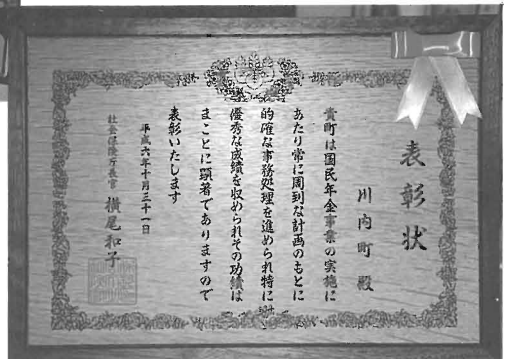 表彰状
川内町殿
貴町は国民年金事業の実施に
あたり常に周到な計画のもとに
的確な事務処理を進められ特に
優秀な成績を収められその功績は
まことに顕著でありますので
表彰いたします
平成六年十月三十一日
社会保険庁長官 横尾和子